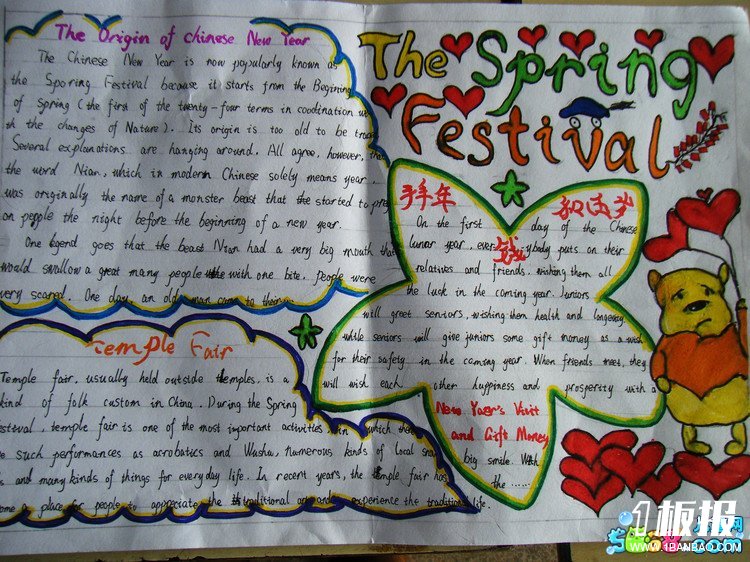 The Origin of Chinese New Year
The Chinese New Year is now popularly known as
the Sporing Festival because it starts from the Beginning
of Spring (the first of the twenty-four terms in coodination
the changes of Nature). Its origin is too old to be
Several explanations are hanging around. All agree, however,
the word Nian, which in modern Chinese solely means year,
was originally the name of a monster beast that the started to
on people the night before the beginning of a new year.
One legend goes that the beast Nian had a very big mouth that
would swallow a great many people with one bite. People were
very scared. One day, an old man came to their
Temple Fair
Temple fair, usually held outside temples, is a
kind of folk custom in China. During the Spring
temple fair is one of the most important activities in which
such performances as acrobatics and Wushu, numerous kinds of local
and many kinds of things for everyday life. In recent years, the temple fair has
a place for people to appreciate the traditional art and experience the traditional life.
The Spring
Festival
拜年 和压岁
钱
On the first day of the Chinese
lunar year, everybody puts on their
relatives and friends, wishing them all
the luck in the coming year. Juniors
will greet seniors, wishing them health and longevity
while seniors will give juniors some gift money as a wish
for their safety in the coming year. When friends meet, they
will wish each other happiness and prosperity with a
New Year's Visit
and Gift Money
big smile. With
the ......
1板报
WWW.1BANBAO.COM